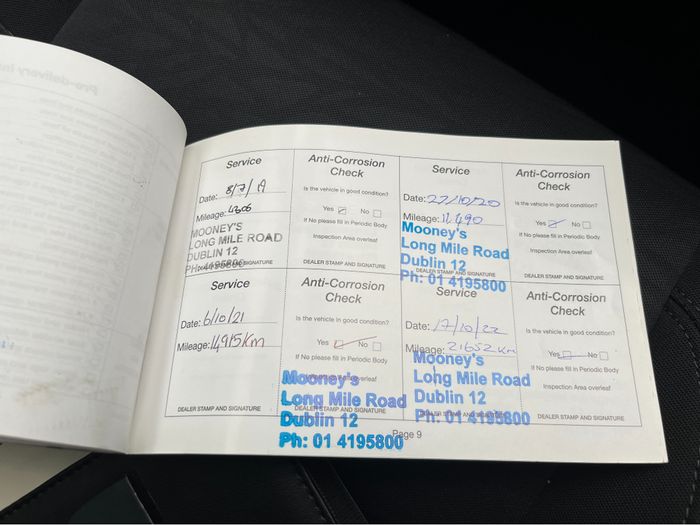 Service
Date: 8/7/19
Mileage:
MOONEY'S
LONG MILE ROAD
DUBLIN 12
PH: 4195800
DEALER STAMP AND SIGNATURE
Anti-Corrosion
Check
Is the vehicle in good condition?
Yes No
If No please fill in Periodic Body
Inspection Area overleaf
DEALER STAMP AND SIGNATURE
Service
Date: 27/10/20
Mileage: 11,490
Mooney's
Long Mile Road
Dublin 12
Ph: 01 4195800
DEALER STAMP AND SIGNATURE
Anti-Corrosion
Check
Is the vehicle in good condition?
Yes No
If No please fill in Periodic Body
Inspection Area overleaf
DEALER STAMP AND SIGNATURE
Service
Date: 6/10/21
Mileage: 14915Km
DEALER STAMP AND SIGNATURE
Anti-Corrosion
Check
Is the vehicle in good condition?
Yes No
If No please fill in Periodic Body
overleaf
Mooney's
Long Mile Road
Dublin 12
Ph: 01 4195800
DEALER STAMP AND SIGNATURE
Service
Date: 17/10/22
Mileage: 21652 Km
Mooney's
Long Mile Road
Dublin 12
Ph: 01 4195800
DEALER STAMP AND SIGNATURE
Anti-Corrosion
Check
Is the vehicle in good condition?
Yes No
If No please fill in Periodic Body
Inspection Area overleaf
DEALER STAMP AND SIGNATURE
Page 9